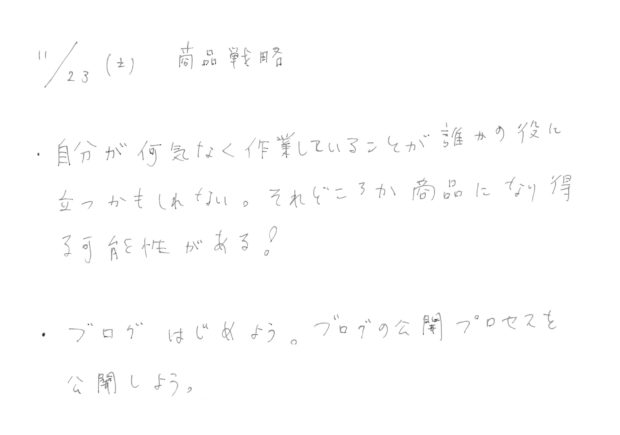 11/23(土) 商品戦略
・自分が何気なく作業していることが誰かの役に
立つかもしれない。それどころか商品になり得
る可能性がある!
・ブログはじめよう。ブログの公開プロセスを
公開しよう。